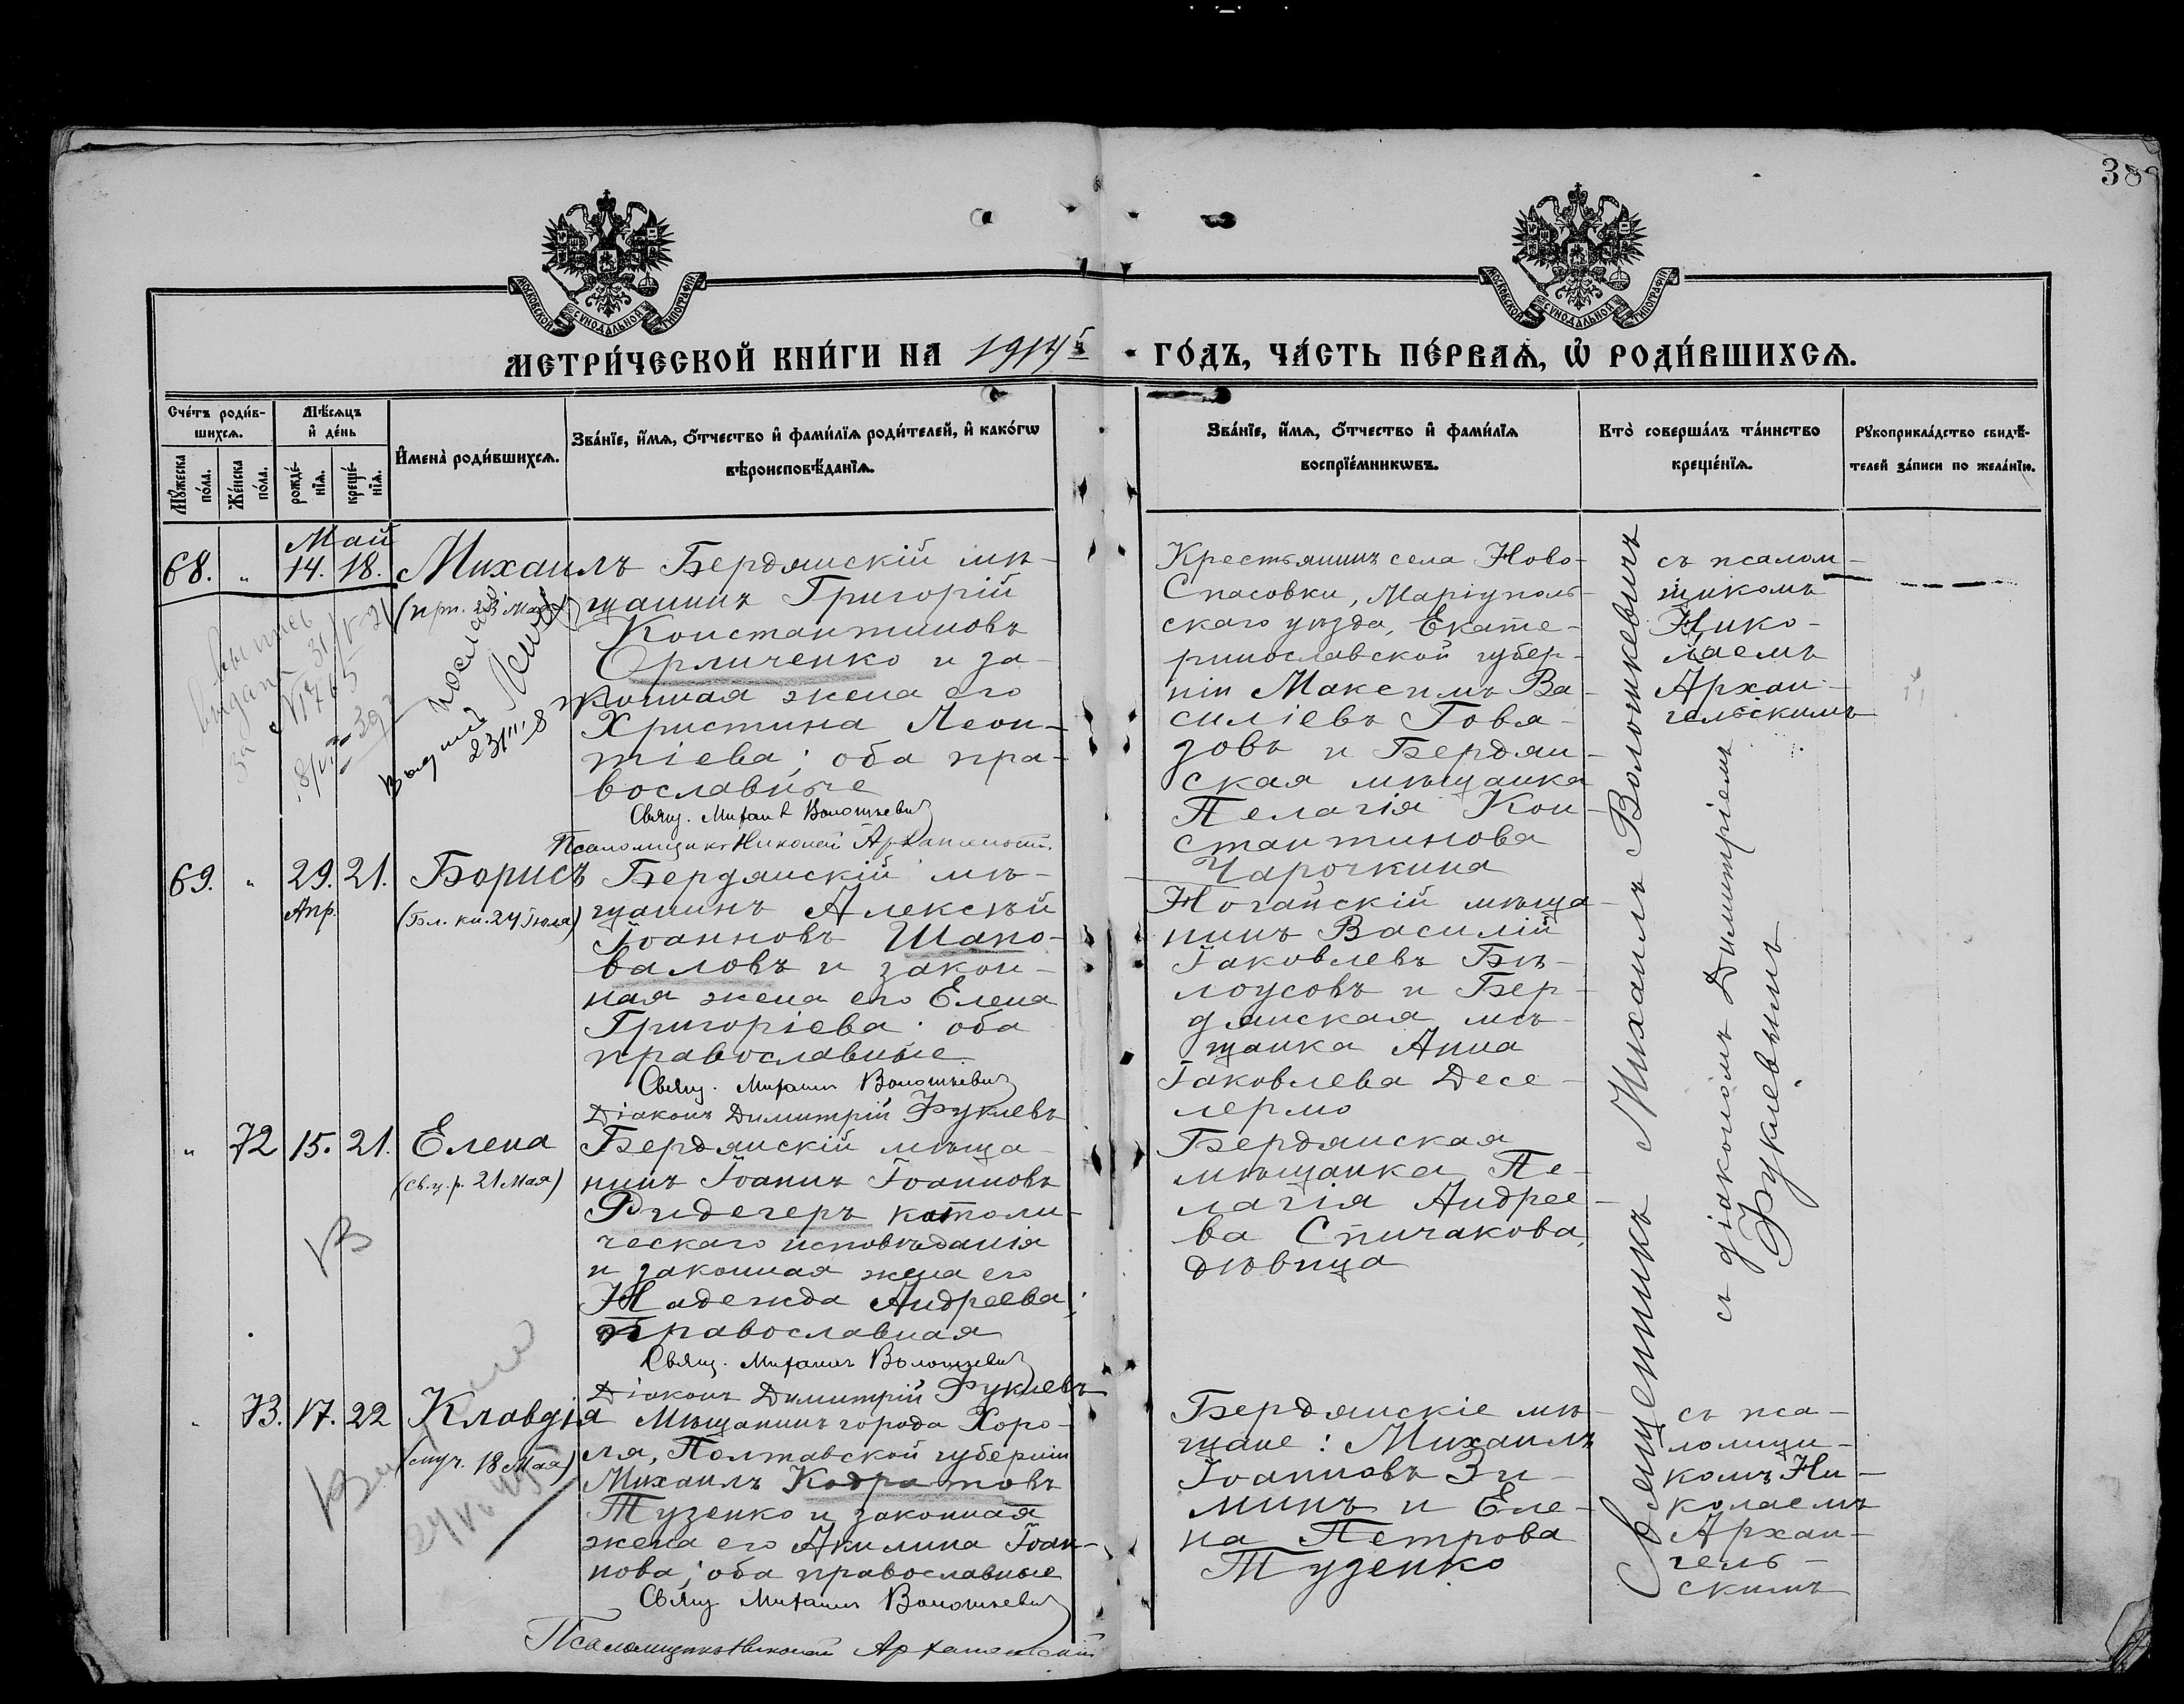 38
МОСКОВСКОЙ СѴНОДАЛЬНОЙ ТИПОГРАФІИ
МОСКОВСКОЙ СѴНОДАЛЬНОЙ ТИПОГРАФІИ
МЕТРИ́ЧЕСКОЙ КНИ́ГИ НА 1914 ГО́ДЪ, ЧА́СТЬ ПЕ́РВАѦ, Ѿ РОДИ́ВШИХСѦ.
Сче́тъ роди́в-
шихсѧ.
Мѣ́сѧцъ
и҆ де́нь
Мꙋ́жеска
по́ла.
Же́нска
по́ла.
рожде́-
нїѧ.
креще́-
нїѧ.
И҆мена̀ роди́вшихсѧ.
Зва́нїе, и҆́мѧ, ѻ҆́тчество и҆ фами́лїѧ роди́телей, и҆ како́гѡ
вѣроисповѣ́данїѧ.
Зва́нїе, и҆́мѧ, ѻ҆́тчество и҆ фами́лїѧ
воспрїе́мникѡвъ.
Кто̀ соверша́лъ та́инство
креще́нїѧ.
Рꙋкоприкла́дство свидѣ́-
телей за́писи по жела́нїю.
Май
68. " 14. 18. Михаилъ
Бердянскій мѣ-
щанинъ Григорій
Константиновъ
Орличенко и за-
конная жена его
Христина Леон-
тіева; оба пра-
вославные
Свящ. Михаилъ Волошкевичъ
Псаломщикъ Николай Архангельскій
Крестьянинъ села Ново-
Спасовки, Маріуполь-
скаго уѣзда, Екате-
ринославской губер-
ніи Максимъ Ва-
силіевъ Говя-
зовъ и Бердян-
ская мѣщанка
Пелагія Кон-
стантинова
Чарочкина
съ псалом-
щикомъ
Нико-
лаемъ
Архан-
гельскимъ
выпись
видана 31/V-21
за №1765
23/III 8
69. " 29. 21. Борисъ
Апр.
(Бл. кн. 24 Іюля)
Бердянскій мѣ-
щанинъ Алексѣй
Іоанновъ Шапо-
валовъ и закон-
ная жена его Елена
Григоріева; оба
православные
Свящ. Михаилъ Волошкевичъ
Діаконъ Димитрій Фуклевъ
Ногайскій мѣща-
нинъ Василій
Іаковлевъ Бѣ-
лоусовъ и Бер-
дянская мѣ-
щанка Анна
Іаковлева Десе-
лермо
" 72 15. 21. Елена
(св. ц. р. 21 Мая)
Бердянскій мѣща-
нинъ Іоаннъ Іоанновъ
Ридегеръ католи-
ческаго исповѣданія
и законная жена его
Надежда Андреева;
православная
Свящ. Михаилъ Волошкевичъ
Діаконъ Димитрій Фуклевъ
Бердянская
мѣщанка Пе-
лагія Андрее-
ва Спичакова,
дѣвица
" 73. 17. 22 Клавдія
(муч. 18 Мая)
Мѣщанинъ города Хоро-
ля, Полтавской губерніи
Михаилъ Кодратовъ
Тузенко и законная
жена его Акилина Іоан-
нова; оба православные
Свящ Михаилъ Волошкевичъ
Псаломщикъ Николай Архангельскій
Бердянскіе мѣ-
щане: Михаилъ
Іоанновъ Зи-
минъ и Еле-
на Петрова
Тузенко
съ пса-
ломщи-
комъ Ни-
колаемъ
Архан-
гель-
скимъ
Священникъ Михаилъ Волошкевичъ
съ діакономъ Димитріемъ
Фуклевымъ